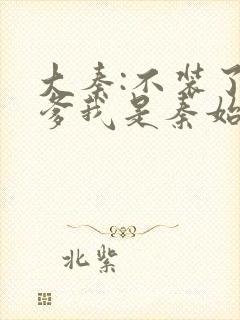 大秦:不装了
爹我是秦始
北紫